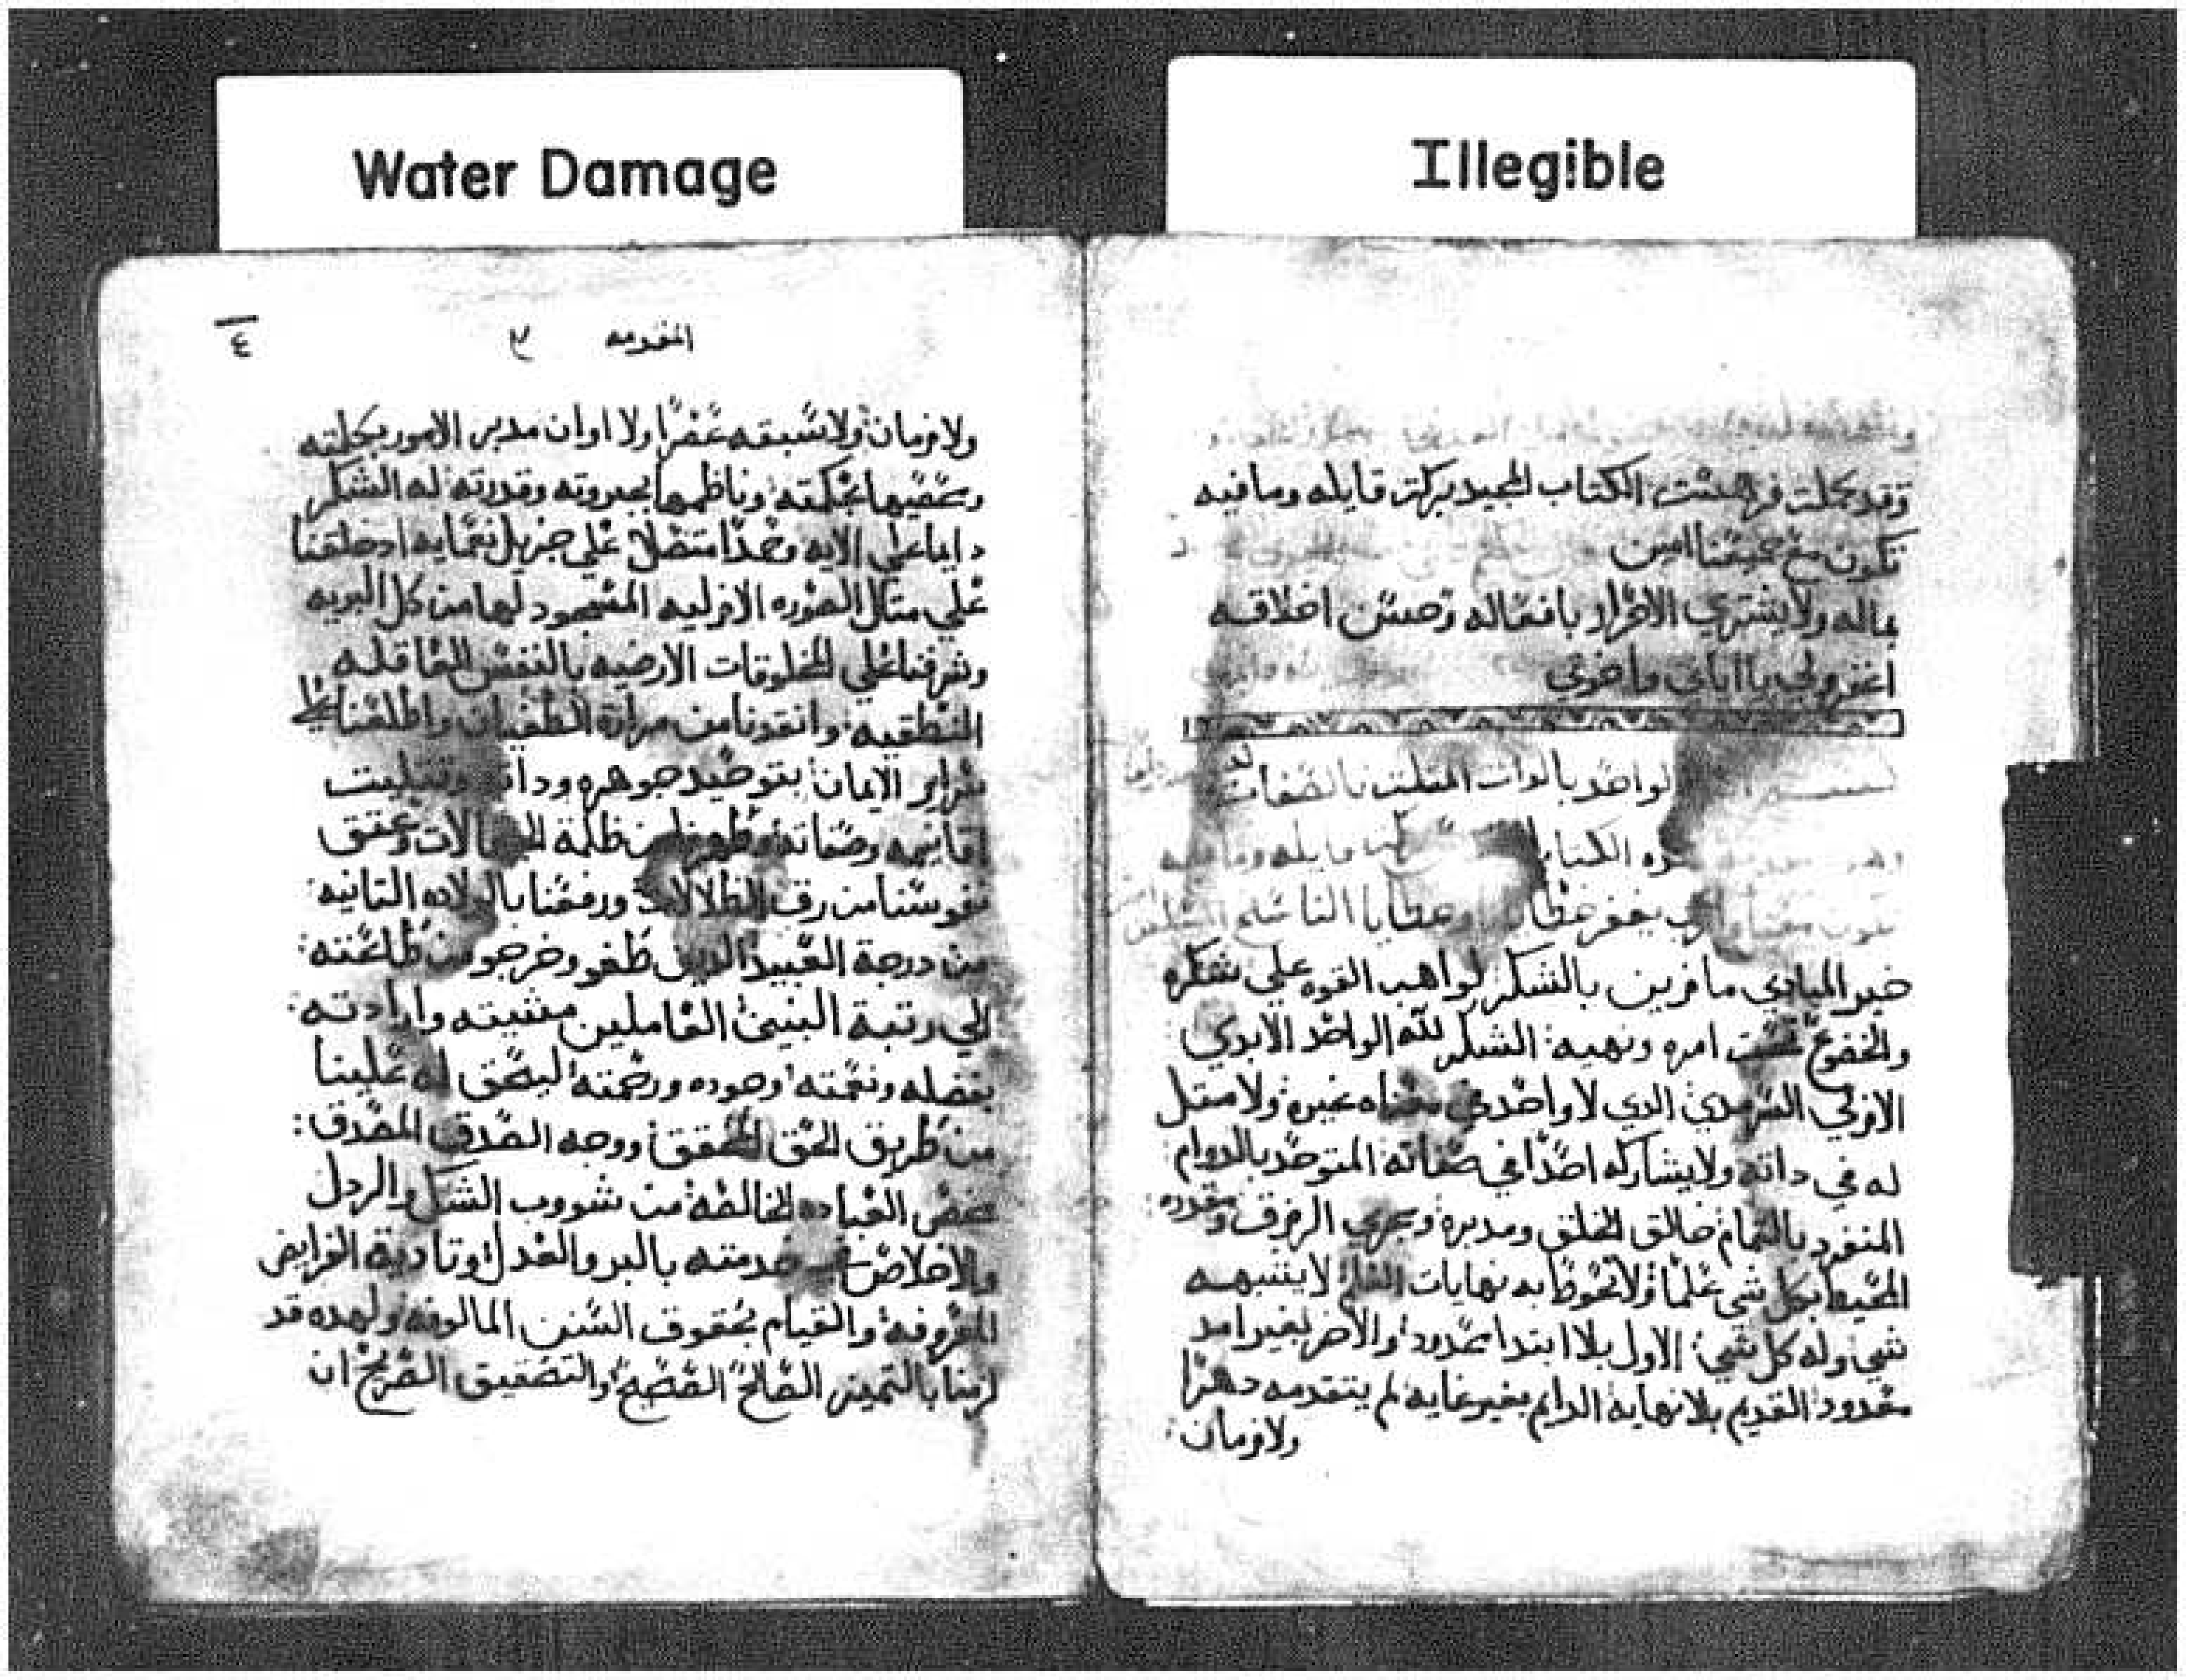 Water Damage
Illegible
وقد كملت فهرست الكتاب المجيد بركة قايله وما فيه
تكون مع جميعنا امين
بماله ولا يشتري الاحرار بافعاله وحسن اخلاقه
اغفرولي يا اباتي واخوتي
الواحد بالدات المتلت بالصفات
الكتاب قايله وما فيه
يغفر خطايا الناسخ المسكين
خير المبادي ما قرين بالشكر لواهب القوه علي شكره
والخضوع تحت امره ونهيه: الشكر لله الواحد الابدي
الازلي السرمدي الدي لا واحد في معناه غيره ولا متل
له في داته ولا يشاركه احدا في صفاته المتوحد بالدوام
المنفرد بالتمام خالق الخلق ومدبره ومجري الرزق ومقدره:
المحيط بكل شي علما ولا تحوط به نهايات لا يشبهه
شي وله كل شي: الاول بلا ابتدا محدود والاخر بغير امد
معدود القديم بلا نهايه الدايم بغير غايه لم يتقدمه دهرا
ولا زمان:
المقدمه ٣
٤
ولا زمان ولا سبقه عصرا ولا اوان مدبر الامور بحكمته
بحكمته وناظمها بجبروته وقدرته له الشكر
دايما علي الايه وحمدا متصلا علي جزيل نعمايه اد خلقنا
علي متال الصوره الازليه المسجود لها من كل البريه
وشرفنا علي المخلوقات الارضيه بالنفس العاقله
النطقيه وانقدنا من مرارة الطغيان واطلعنا علي
سراير الايمان بتوحيد جوهره وداته وتتليت
اقانيمه وصفاته وطهرنا من ظلمة الجهالات وعتق
نفوسنا من رق الظلالات ورفعنا بالولاده التانيه
من درجة العبيد الدين طغو وخرجو من طاعته:
الي رتبة البنين العاملين مشيته وارادته:
بفضله ونعمته وجوده ورحمته ليحق له علينا
من طريق الحق المحقق ووجه الصدق المصدق:
محض العباده الخالصه من شووب الشك والزلل
والاخلاص في خدمته بالبر والعدل وتادية الفرايض
المعروفه والقيام بحقوق السنن المالوفه ولهده قد
لزمنا بالتمييز الصالح الصحيح والتصديق الصريح ان